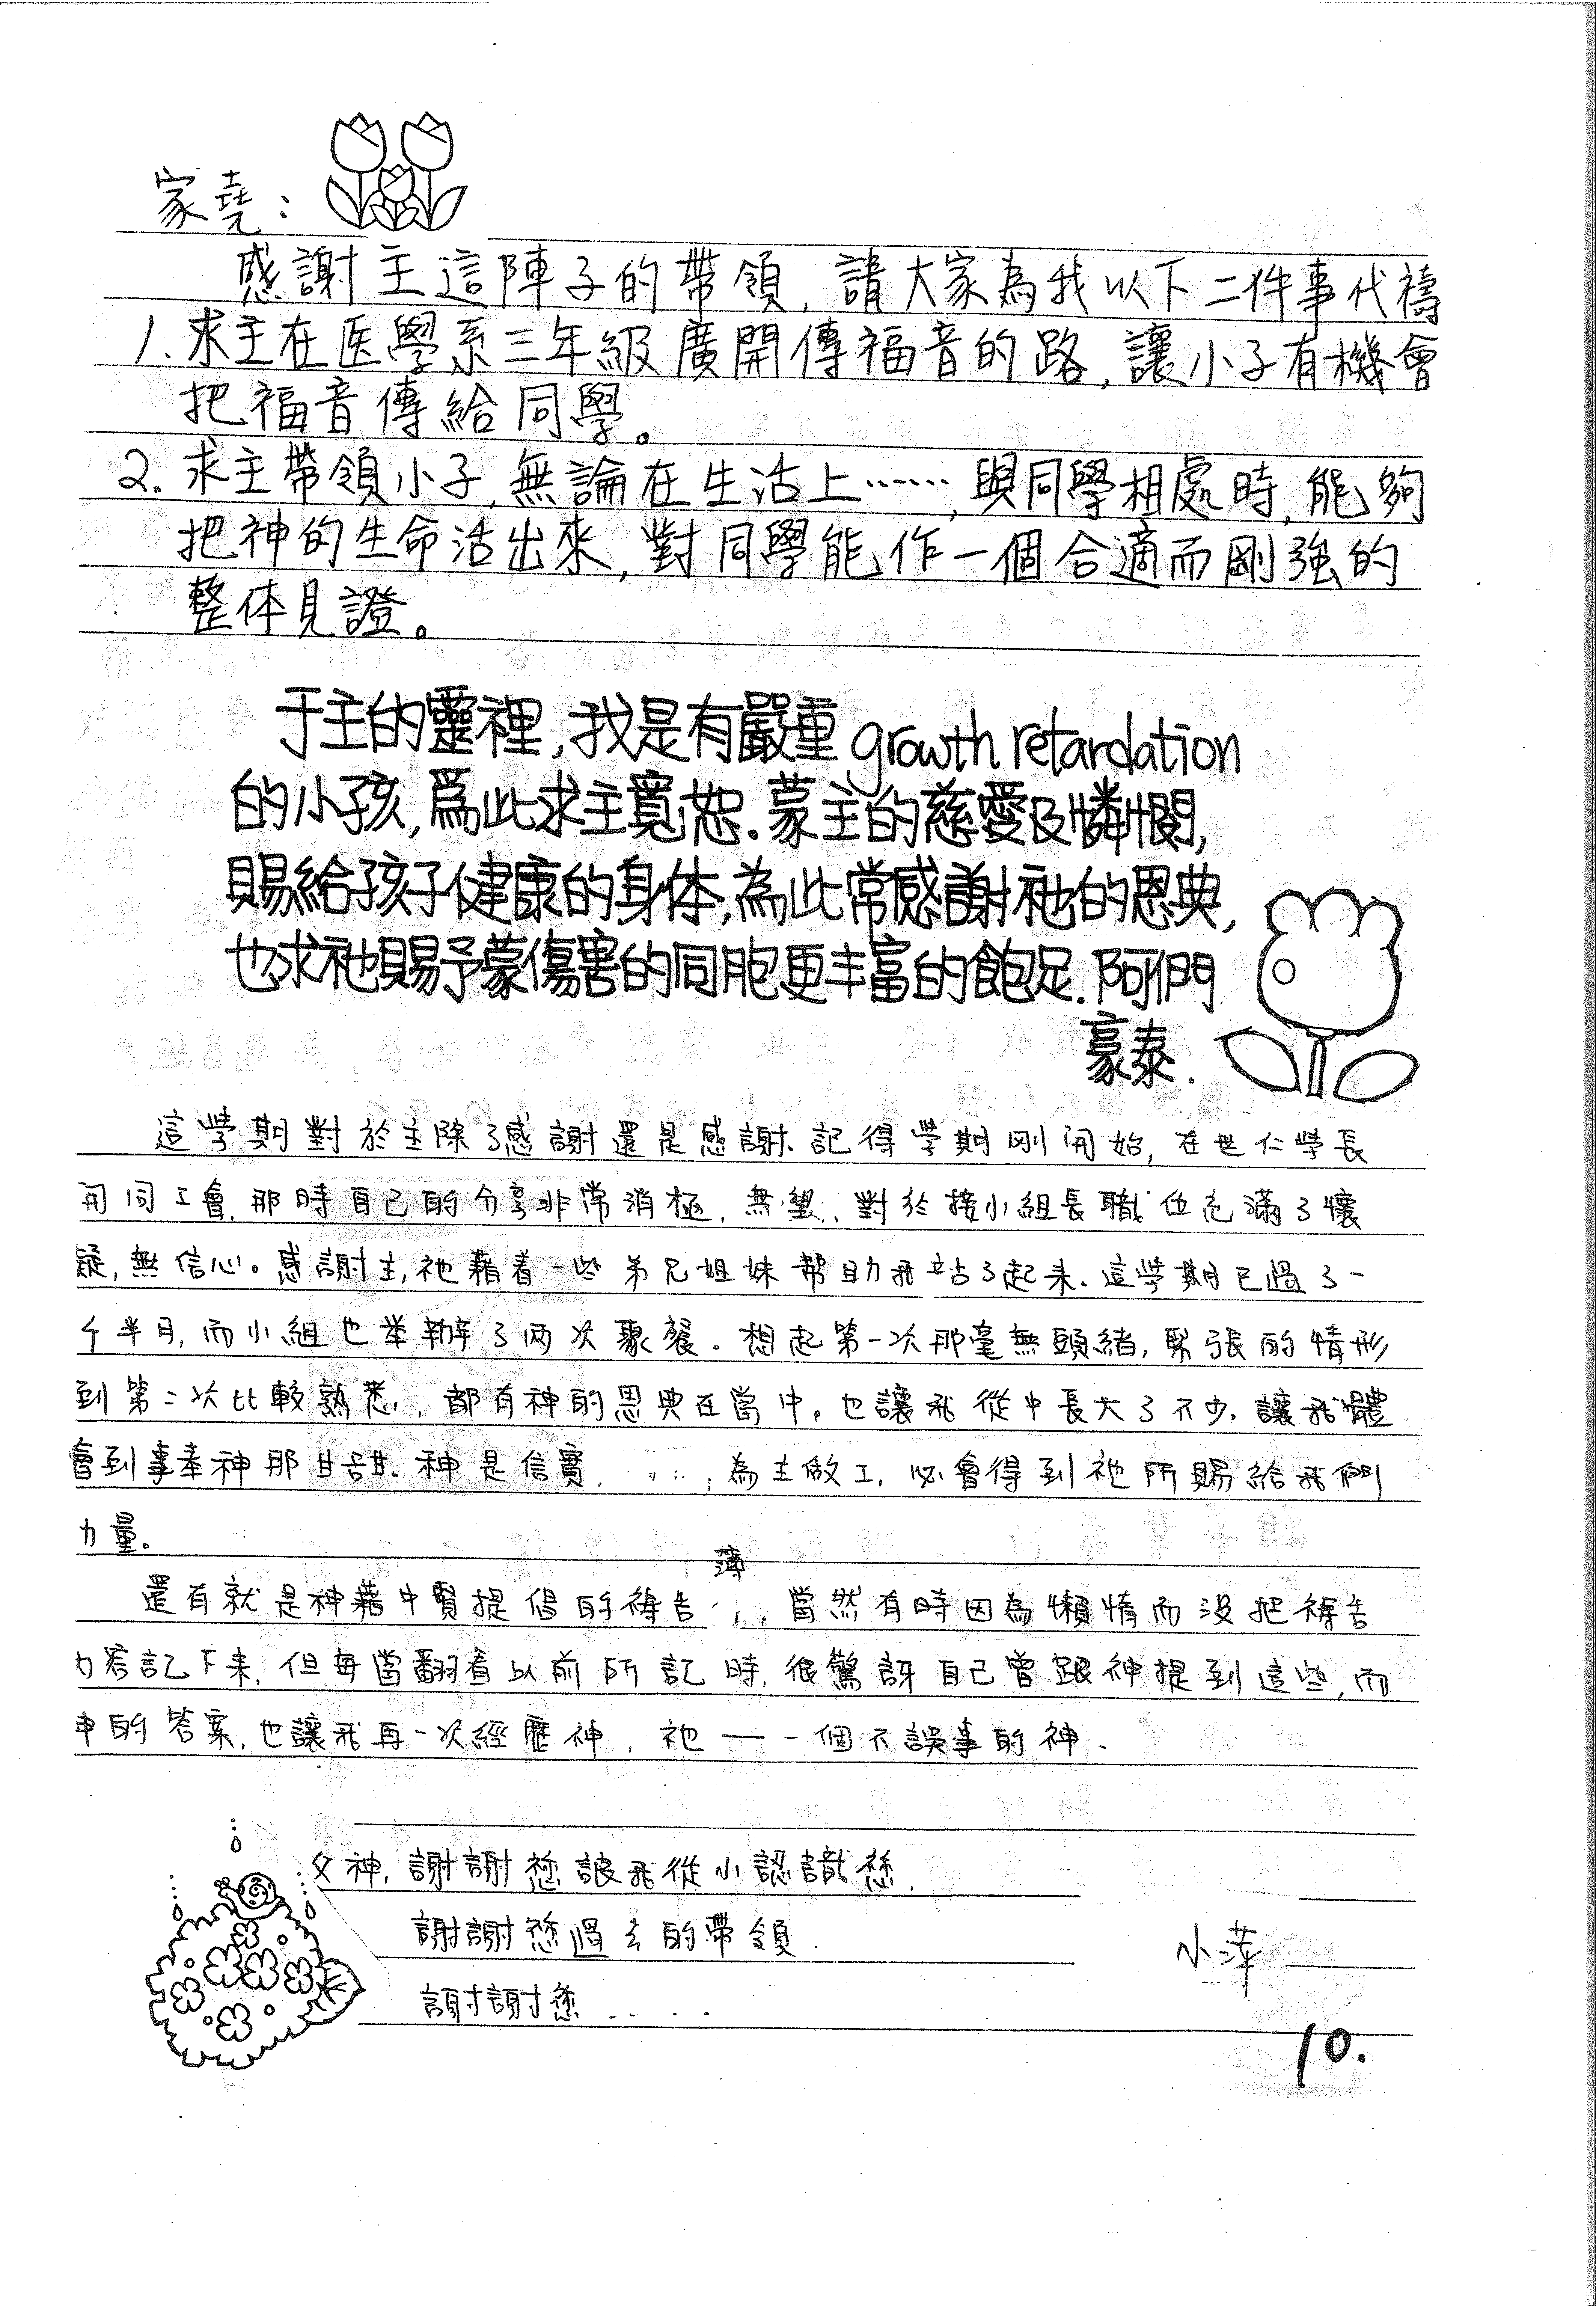 家堯：
感謝主這陣子的帶領，請大家為我以下二件事代禱
1. 求主在医學系三年級廣開傳福音的路，讓小子有機會
把福音傳給同學。
2. 求主帶領小子，無論在生活上……，與同學相處時，能夠
把神的生命活出來，對同學能作一個合適而剛強的
整体見證。
于主的靈裡，我是有嚴重 growth retardation
的小孩，爲此求主寬恕．蒙主的慈愛及憐憫，
賜給孩子健康的身体，為此常感謝祂的恩典，
也求祂賜予蒙傷害的同胞更丰富的飽足．阿們
豪泰．
這學期對於主除了感謝還是感謝．記得學期剛開始，在世仁學長
開同工會，那時自己的分享非常消極，無　，對於接小組長職位充滿了懷
疑，無信心。感謝主，祂藉着一些弟兄姐妹帮助我站了起来．這學期已過了一
个半月，而小組也举辦了两次聚餐。想起第一次那毫無頭緒，緊張的情形
到第二次比較熟悉，都有神的恩典在當中，也讓我從中長大了不少，讓我體
會到事奉神那甘甜．神是信實，……，為主做工，必會得到祂所賜給我們
力量。
還有就是神藉中賢提倡的禱告簿，當然有時因為懶惰而没把禱告
内容記下来，但每當翻看以前所記時，很驚訝自己曾跟神提到這些，而
神的答案，也讓我再一次經歷神，祂——一個不誤事的神．
父神，謝謝您讓我從小認識您．
謝謝您過去的帶領．
謝謝您．．．．
小萍
10.